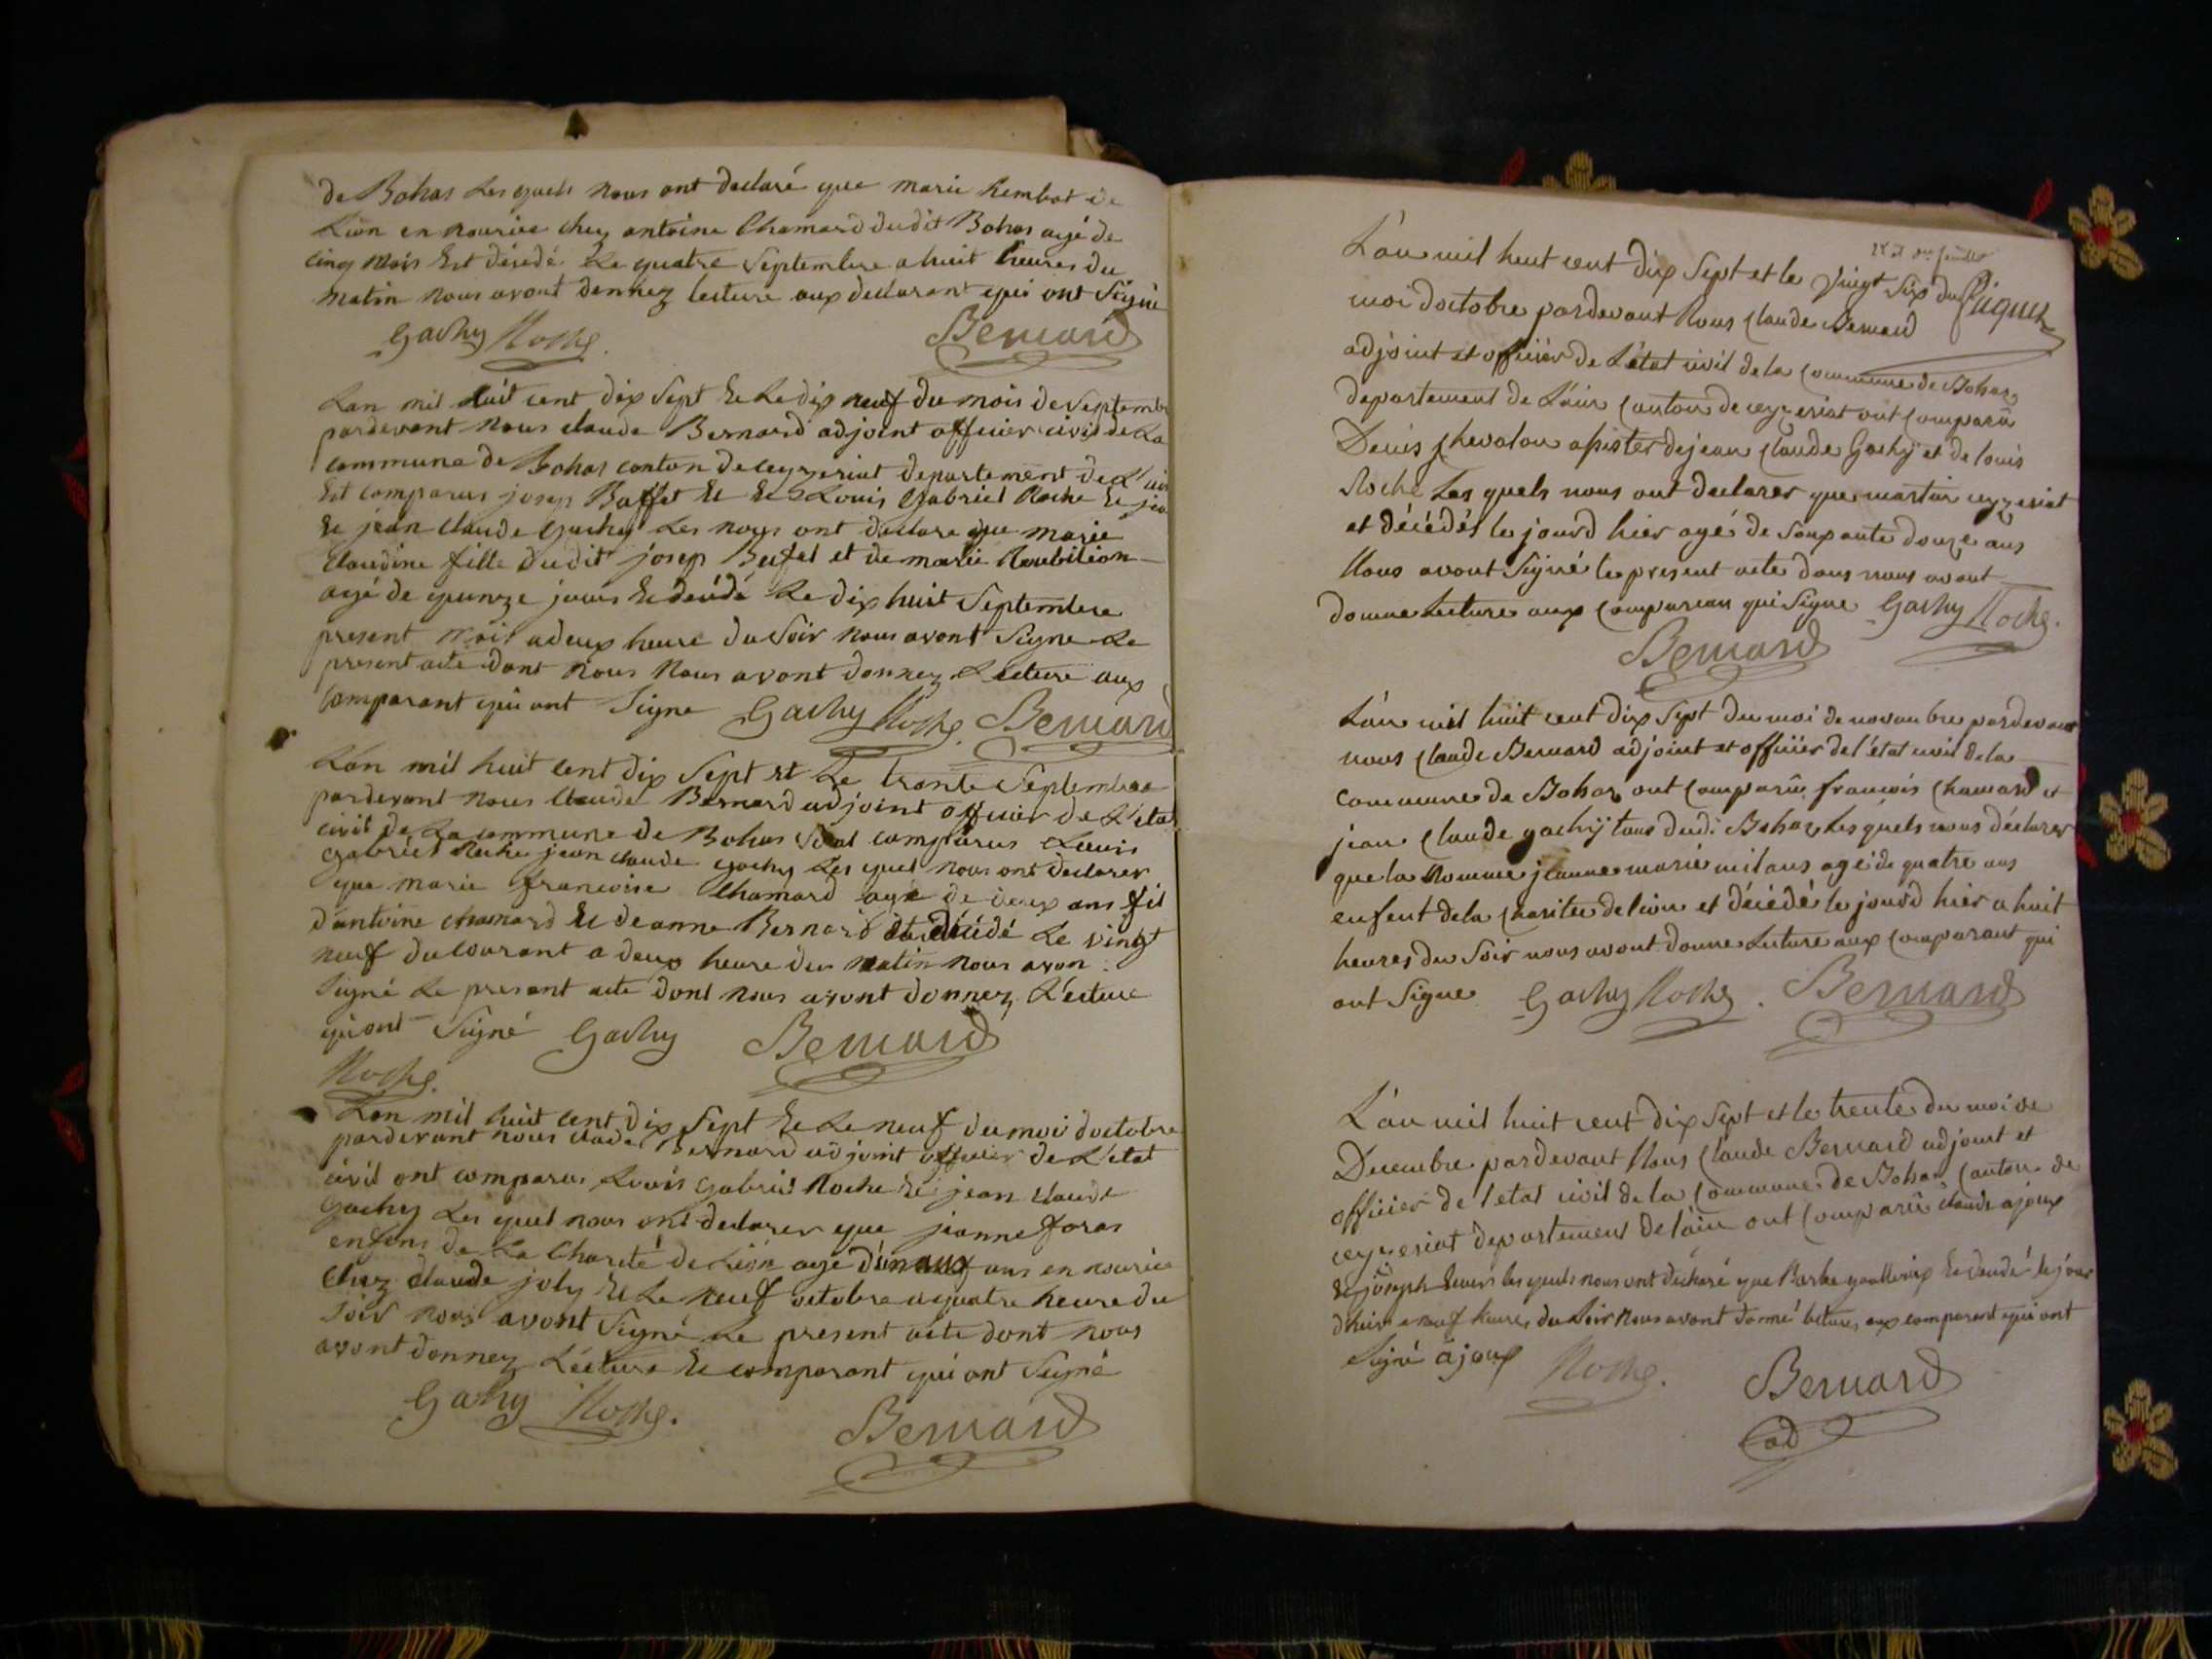 de Bohas Lesquels nous ont declaré que marie Rembot de
Lion en nourice chez antoine Chamard dudit Bohas agé de
cinq mois Est décedé Le quatre Septembre a huit heures du
matin nous avont donnez lecture aux declarant qui ont Signé
Gachy Roche Bernard
Lan mil huit cent dix Sept Et Le dix neuf du mois de Septembre
pardevant nous claude Bernard adjoint officier civil de La
commune de Bohas canton de ceyzeriat departement de L'ain
Est comparus josep Buffet Et Louis Gabriel Roche Et
Et jean claude Gachy Les nous ont declare que marie
Claudine fille dudit josep Bufet et de marie Roubilion
agé de quinze jours Et décédé Le dix huit Septembre
present mois a deux heure du Soir nous avont Signe Le
present acte dont nous nous avont donnez Lecture aux
comparant qui ont Signe Gachy Roche Bernard
Lan mil huit cent dix Sept et Le trante Septembre
pardevant nous Claude Bernard adjoint officier de L'etat
civil de La commune de Bohas Sont comparus Louis
Gabriel Roche jean claude gachy Les quel nous ont declarer
que marie francoise Chamard agé de deux ans fil
d'antoine chamard Et de anne Bernard décédé Le vingt
neuf du courant a deux heure du matin nous avon
Signé Le present acte dont nous avont donnez L'ecture
qui ont Signé Gachy Bernard
Roche
Lan mil huit cent dix Sept Et Le neuf du moi doctobre
pardevant nous claude Bernard adjoint officier de L'etat
civil ont comparus Louis Gabriel Roche Et jean claude
Gachy Les quel nous ont declarer que jeanne foras
enfens de La Charité de Lion agé ans en nourice
Chez claude joly Et Le neuf octobre a quatre heure du
Soir nous avont Signé Le present acte dont nous
avont donnez L'ecture Et comparant qui ont Signé
Gachy Roche Bernard
L'an mil huit cent dix Sept et le vingt Six du
moi doctobre pardevant Nous Claude Bernard
adjoint et officier de L'état civil de la Commune de Bohas
departement de L'ain Canton de ceyzeriat ont Comparû
Denis Chevalon de jean Claude Gachy et de louis
Roche Les quels nous ont declarer que martin ceyzeriat
et décédés le jourd hier agé de Soixante douze ans
Nous avont Signé le present acte dons nous avont
donne Lecture aux Comparean qui Signe Gachy Roche
Bernard
L'an mil huit cent dix Sept du moi de novanbre pardevant
nous Claude Bernard adjoint et officier de l'état civil de la
Commune de Bohas ont Comparû francois Chamard et
jean Claude gachy tous dudi Bohas les quels nous déclarer
que la Nomme jeanne marie milans agé de quatre ans
enfent de la Charitee de lion et décédé le jourd hier a huit
heures du Soir nous avont donne Lecture aux Comparant qui
ont Signe Gachy Roche Bernard
L'an mil huit cent dix Sept et le trente du moi de
Decembre pardevant Nous Claude Bernard adjoint et
officier de l'etat civil de la Commune de Bohas Canton de
ceyzeriat departement de l'ain ont Comparû claude ajoux
Et joseph les quels nous ont déclaré que Et décédé le jour
d'hier a neuf heures du Soir Nous avont donné lecture aux comparant qui ont
Signé ajoux Roche Bernard
ad